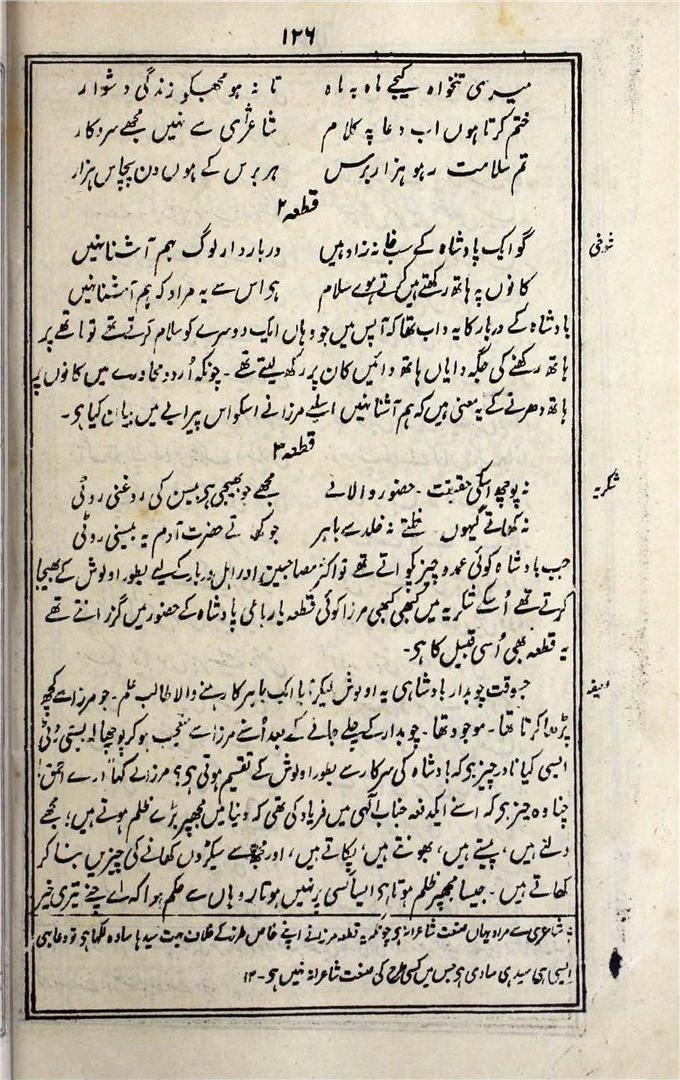 ۱۲۶
میری تنخواہ کیجے ماہ بہ ماہ تا نہ ہو مجھکو زندگی دشوار
ختم کرتا ہوں اب دعا پہ کلام شاعری سے نہیں مجھے سروکار
تم سلامت رہو ہزار برس ہر برس کے ہوں دن پچاس ہزار
قطعہ ۲
شوخی
گو ایک پادشاہ کے سب خانہ زاد ہیں دربار دار لوگ بہم آشنا نہیں
کانوں پہ ہاتھ رکھتے ہیں کرتے ہوے سلام ہی اس سے یہ مراد کہ ہم آشنا نہیں
بادشاہ کے دربار کا یہ داب تھا کہ آپس میں جو وہاں ایک دوسرے کو سلام کرتے تھے تو ماتھے پر
ہاتھ رکھنے کی جگہ دایاں ہاتھ دائیں کان پر رکھ لیتے تھے ۔ چونکہ اُردو محاورے میں کانوں پہ
ہاتھ دھرنے کے یہ معنی ہیں کہ ہم آشنا نہیں اسلیے مرزا نے اسکو اس پیرایے میں بیان کیا ہی ۔
قطعہ ۳
شکریہ
نہ پوچھ اسکی حقیقت ۔ حضور والا نے مجھے جو بھیجی ہی بیسن کی روغنی روٹی
نہ کھاتے گیہوں نکلتے نہ خلد سے باہر جو کھاتے حضرت آدم یہ بیسنی روٹی
جب بادشاہ کوئی عمدہ چیز پکواتے تھے تو اکثر مصاحبین اور اہل دربار کے لیے بطور اولوش کے بھیجا
کرتے تھے اُسکے شکریہ میں کبھی کبھی مرزا کوئی قطعہ یا رباعی بادشاہ کے حضور میں گزرانتے تھے
یہ قطعہ بھی اُسی قبیل کا ہی ۔
لطیفہ
جسوقت چوبدار بادشاہی یہ اولوش لیکر آیا ایک باہر کا رہنے والا طالب علم ۔ جو مرزا سے کچھ
پڑھا کرتا تھا ۔ موجود تھا ۔ چوبدار کے چلے جانے کے بعد اُسنے مرزا سے متعجب ہو کر پوچھا کہ بیسنی روٹی
ایسی کیا نادر چیز ہی کہ بادشاہ کی سرکار سے بطور اولوش کے تقسیم ہوتی ہی؟ مرزا نے کہا "ارے احمق!
چنا وہ چیز ہی کہ اسنے ایکدفعہ جناب الٰہی میں فریاد کی تھی کہ دنیا میں مجھپر بڑے ظلم ہوتے ہیں؛ مجھے
دلتے ہیں، پیستے ہیں، بھونتے ہیں، پکاتے ہیں، اور مجھ سے سیکڑوں کھانے کی چیزیں بنا کر
کھاتے ہیں ۔ جیسا مجھپر ظلم ہوتا ہی ایسا کسی پر نہیں ہوتا، وہاں سے حکم ہوا کہ اے چنے تیری خیر
شاعری سے مراد یہاں صنعت شاعرانہ ہی چونکہ یہ قطعہ مرزا نے اپنے خاص طرز کے خلاف بہت سیدھا سادہ لکھا ہی تو دعا بھی
ایسی ہی سیدھی سادی ہی جس میں کسی طرح کی صنعت شاعرانہ نہیں ہی ۔ ۱۲